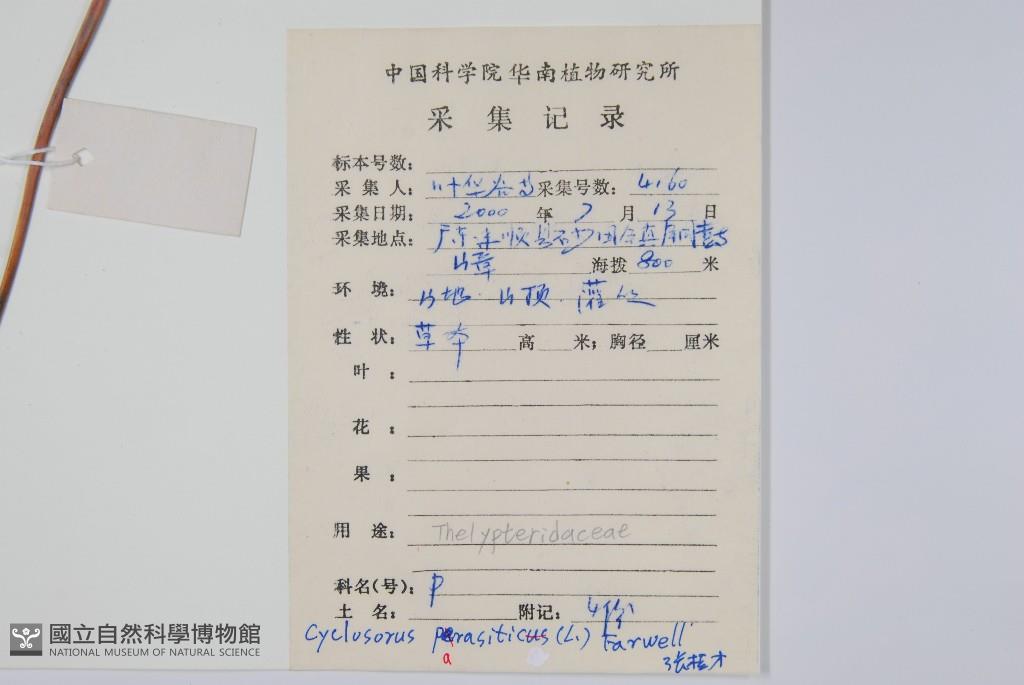 中国科学院华南植物研究所
采集记录
标本号数：
采集人：叶华谷等 采集号数：4160
采集日期：2000 年 7 月 13 日
采集地点：广东
海拨 800 米
环境：山地．山顶．灌丛
性状：草本 高 米；胸径 厘米
叶：
花：
果：
用途：Thelypteridaceae
科名(号)：P
土名： 附记：4份
Cyclosorus parasiticus (L.) Farwell
a
张桂才
國立自然科學博物館
NATIONAL MUSEUM OF NATURAL SCIENCE